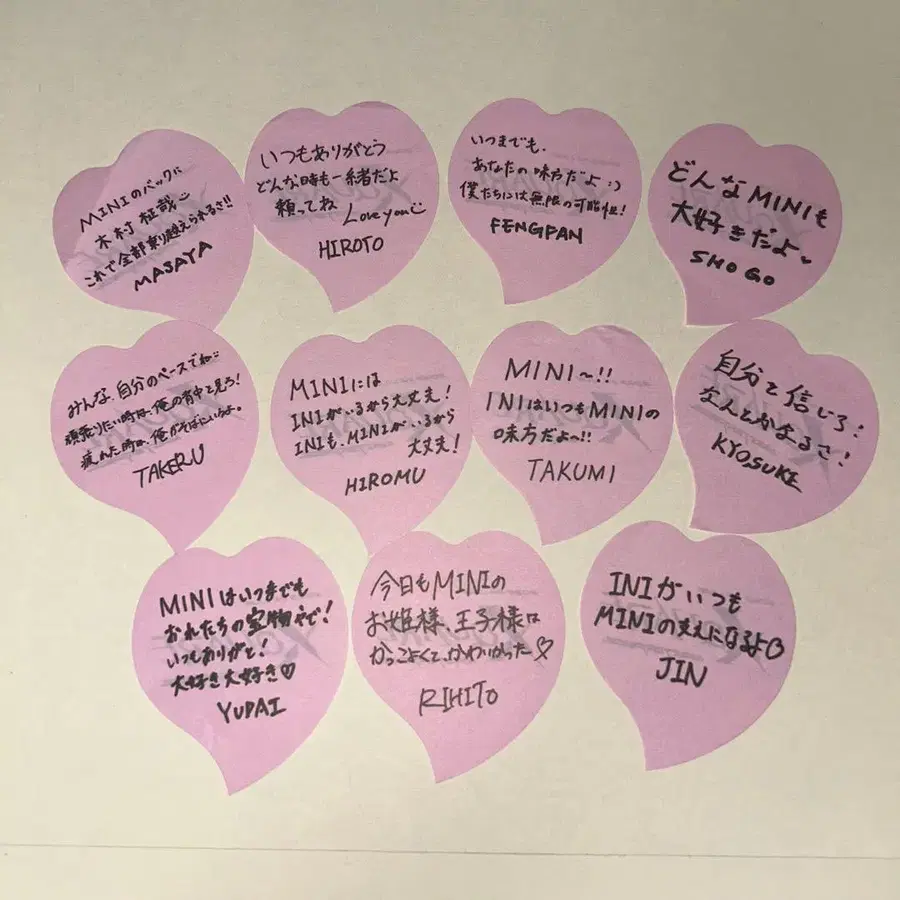 MINIのバックに
木村柾哉
これで全部乗り越えられるさ!!
MASAYA
いつもありがとう
どんな時も一緒だよ
頼ってね Love you
HIROTO
いつまでも、
あなたの味方だよ :)
僕たちには無限の可能性!
FENGFAN
どんなMINIも
大好きだよ
SHOGO
みんな、自分のペースでね
頑張りたい時は、俺の背中を見ろ!
疲れた時は、俺がそばにいるよ。
TAKERU
MINIには
INIがいるから大丈夫!
INIも、MINIがいるから
大丈夫!
HIROMU
MINI〜!!
INIはいつもMINIの
味方だよ〜!!
TAKUMI
自分を信じろ!
なんとかなるさ!
KYOSUKE
MINIはいつまでも
おれたちの宝物やで!
いつもありがと!
大好き大好き♡
YUDAI
今日もMINIの
お姫様、王子様は
かっこよくて、かわいかった♡
RIHITO
INIがいつも
MINIの支えになるよ♡
JIN